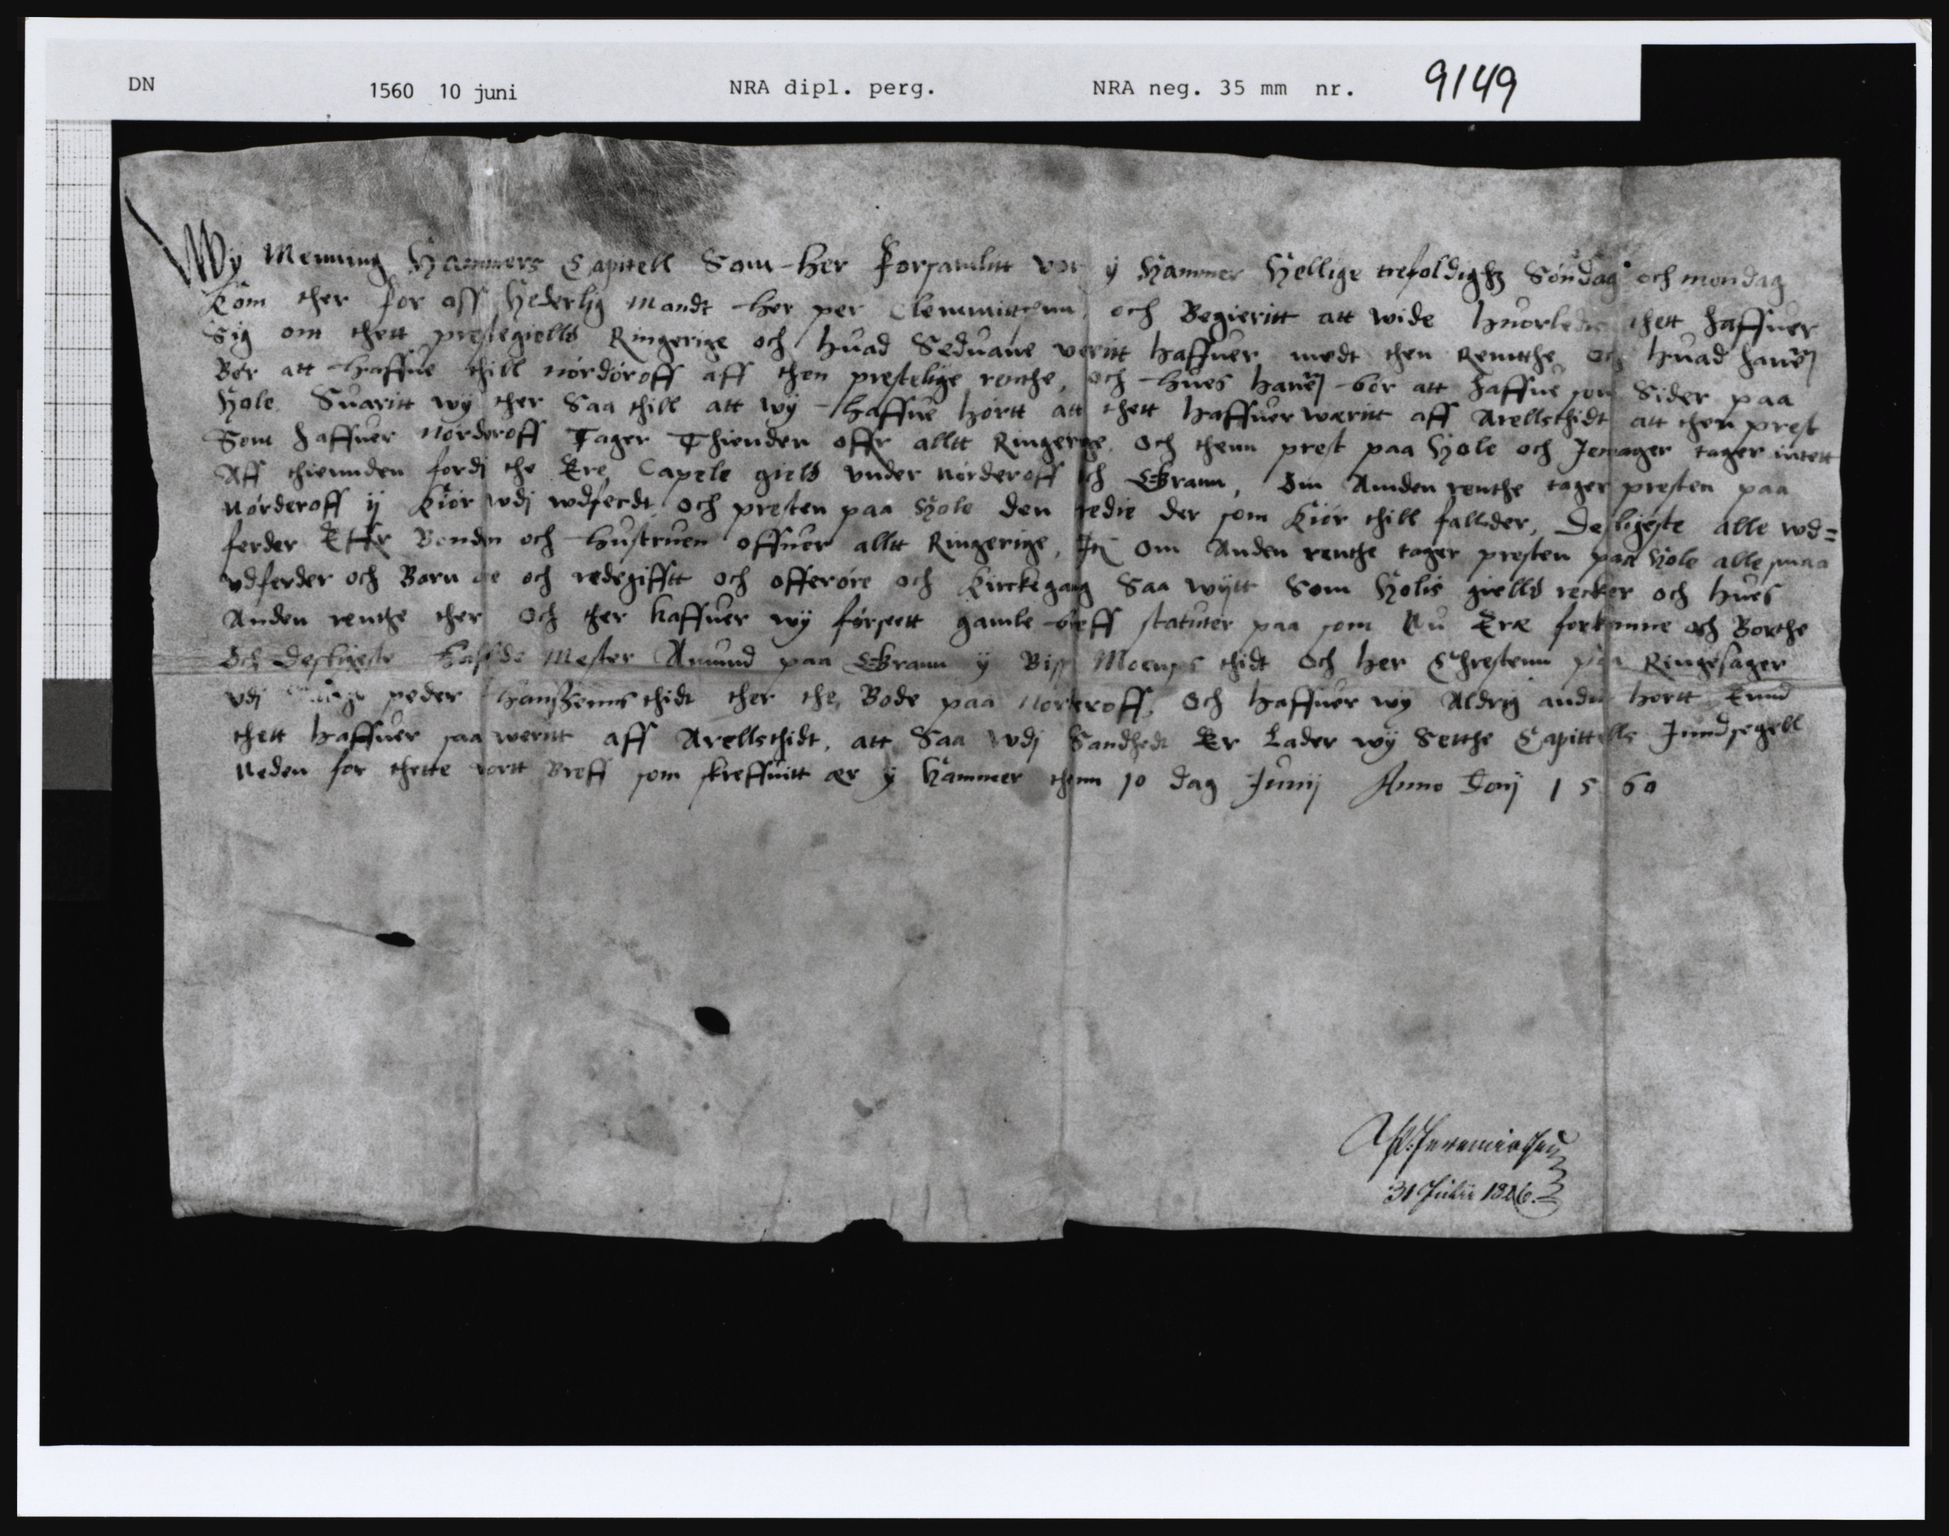 DN 1560 10 juni NRA dipl. perg. NRA neg. 35 mm nr. 9149
Wy Menning Hammers Capitell Som her forsamlitt vor y Hammer Hellige trefoldighz Søndag och mondag
Kom ther for oss Hederlig Mandt her per Clemmittsenn och Begieritt att wide huorledis thett haffuer
Sig om thett prestegielld Ringerige och huad Seduane veritt haffuer medt then Renntthe Och huad hand
Bør att haffue thill nórdóroff aff then prestelige renthe, och hues hand bor att haffue som Sider paa
Hole Suaritt wij ther Saa thill att wij haffue hórtt att thett haffuer wæritt aff Arellsthidt att then prest
Som haffuer Nórderoff Tager Thienden offr alltt Ringerige, Och thenn prest paa Hole och Jemager tager intett
Aff thiennden fordj the Ere Capele gield vnder nórderoff och Grann, Om Annden renthe tager presten paa
Nórderoff ij kiór wdj wdferdt och presten paa Hole den tredie der som kiór thill fallder, Desligeste alle wd=
ferder Effr Bonden och hustruen offuer alltt Ringerige, Itz Om Anden renthe tager presten paa Hole alle smaa
vdferder och Barn och redegifftt och offeróre och kirckegang Saa wijtt Som Holis gielld recker och hues
Anden renthe ther Och ther haffuer wij fórseett gamle breff statuter paa som Nu Eræ forkomne och Borthe
Och desligeste haffde Mester Amund paa Grann ij Bisp Moenss thidt Och her Chrestenn paa Ringesager
vdj peder Hanssenns thidt ther the Bode paa Nórderoff, Och haffuer wij Aldrig andit hørtt Ennd
thett haffuer saa weritt aff Arellsthidt, att Saa wdj Sandhedt Er Lader wij Setthe Capittells Jnndsegell
Neden for thette vortt Breff som skreffuitt ær ij Hammer thenn 10 dag Junij Anno Donj 1560
31 Julii 1806.